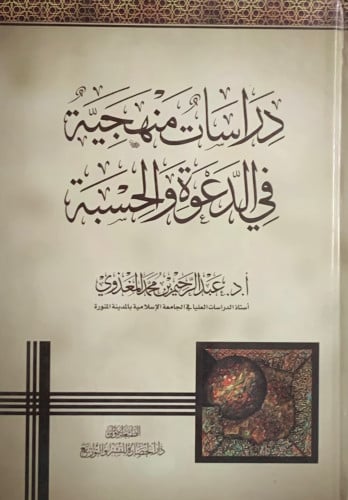 دِرَاسَاتٌ مَنْهَجِيَّةٌ
فِي الدَّعْوَةِ وَالحِسْبَةِ
أ.د. عبد الرحيم بن محمد المغذوي
أستاذ الدراسات العليا في الجامعة الإسلامية بالمدينة المنورة
دار الحضارة للنشر والتوزيع